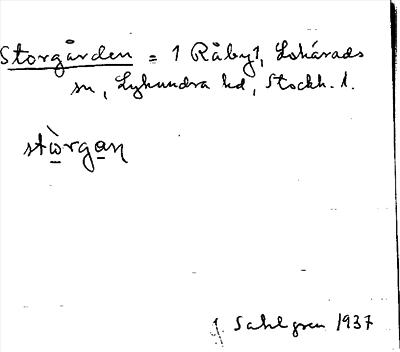 Storgården = 1 Råby 1, Lohärads
sn, Lyhundra hd, Stockh. l.
stòrgan
J. Sahlgren 1937